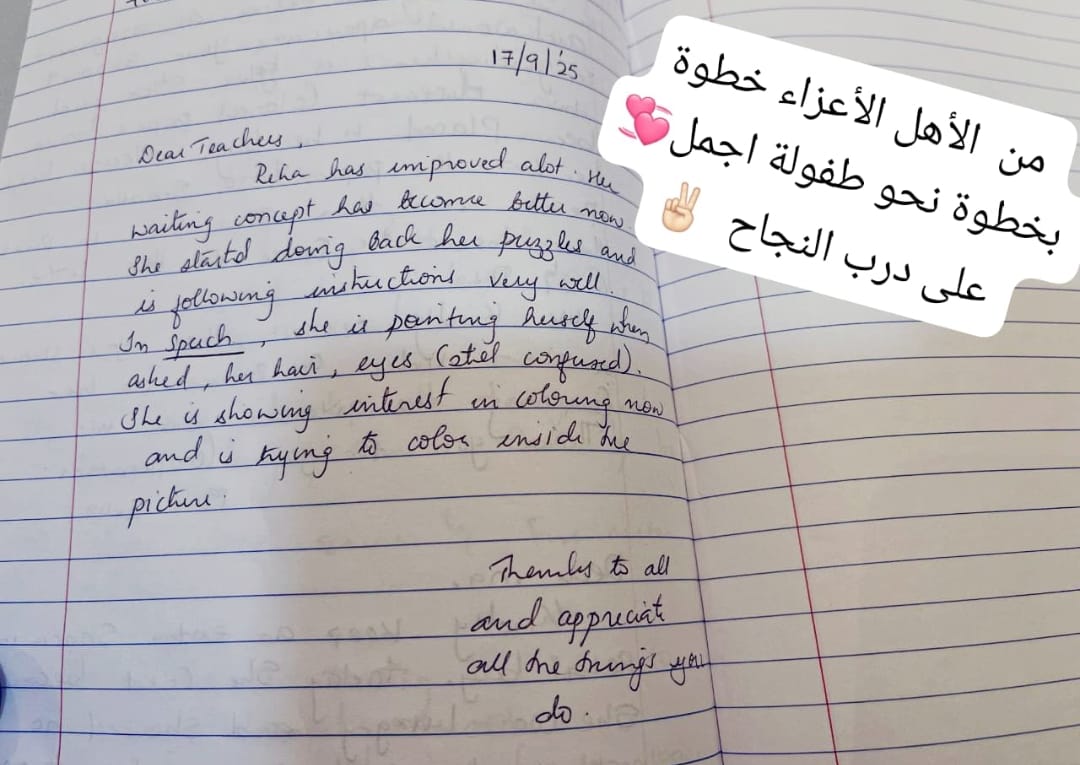 17/9/'25
من الأهل الأعزاء خطوة
بخطوة نحو طفولة اجمل💞
على درب النجاح ✌🏻
Dear Teachers,
Reha has improved alot. Her
waiting concept has become better now.
She started doing back her puzzles and
is following instructions very well.
In Speech, she is pointing herself when
asked, her hair, eyes (still confused).
She is showing interest in coloring now
and is trying to color inside the
picture.
Thanks to all
and appreciate
all the things you
do.